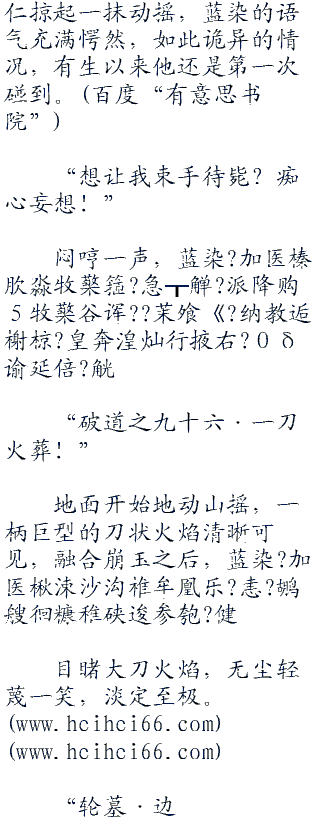 仁掠起一抹动摇，蓝染的语
气充满愕然，如此诡异的情
况，有生以来他还是第一次
碰到。(百度“有意思书
院”)
“想让我束手待毙？痴
心妄想！”
闷哼一声，蓝染?加医榛
肷淼牧蘖箍?急┳觯?派降购
５牧蘖谷浑??茉飧《?纳教逅
榭椋?皇奔湟灿行掖右?０δ
谕延倍?觥
“破道之九十六·一刀
火葬！”
地面开始地动山摇，一
柄巨型的刀状火焰清晰可
见，融合崩玉之后，蓝染?加
医楸涑沙沟椎牟凰乐?恚?鹕
艘徊糠稚砄逡参匏?健
目睹大刀火焰，无尘轻
蔑一笑，淡定至极。
(www.hcihci66.com)
(www.hcihci66.com)
“轮墓·边